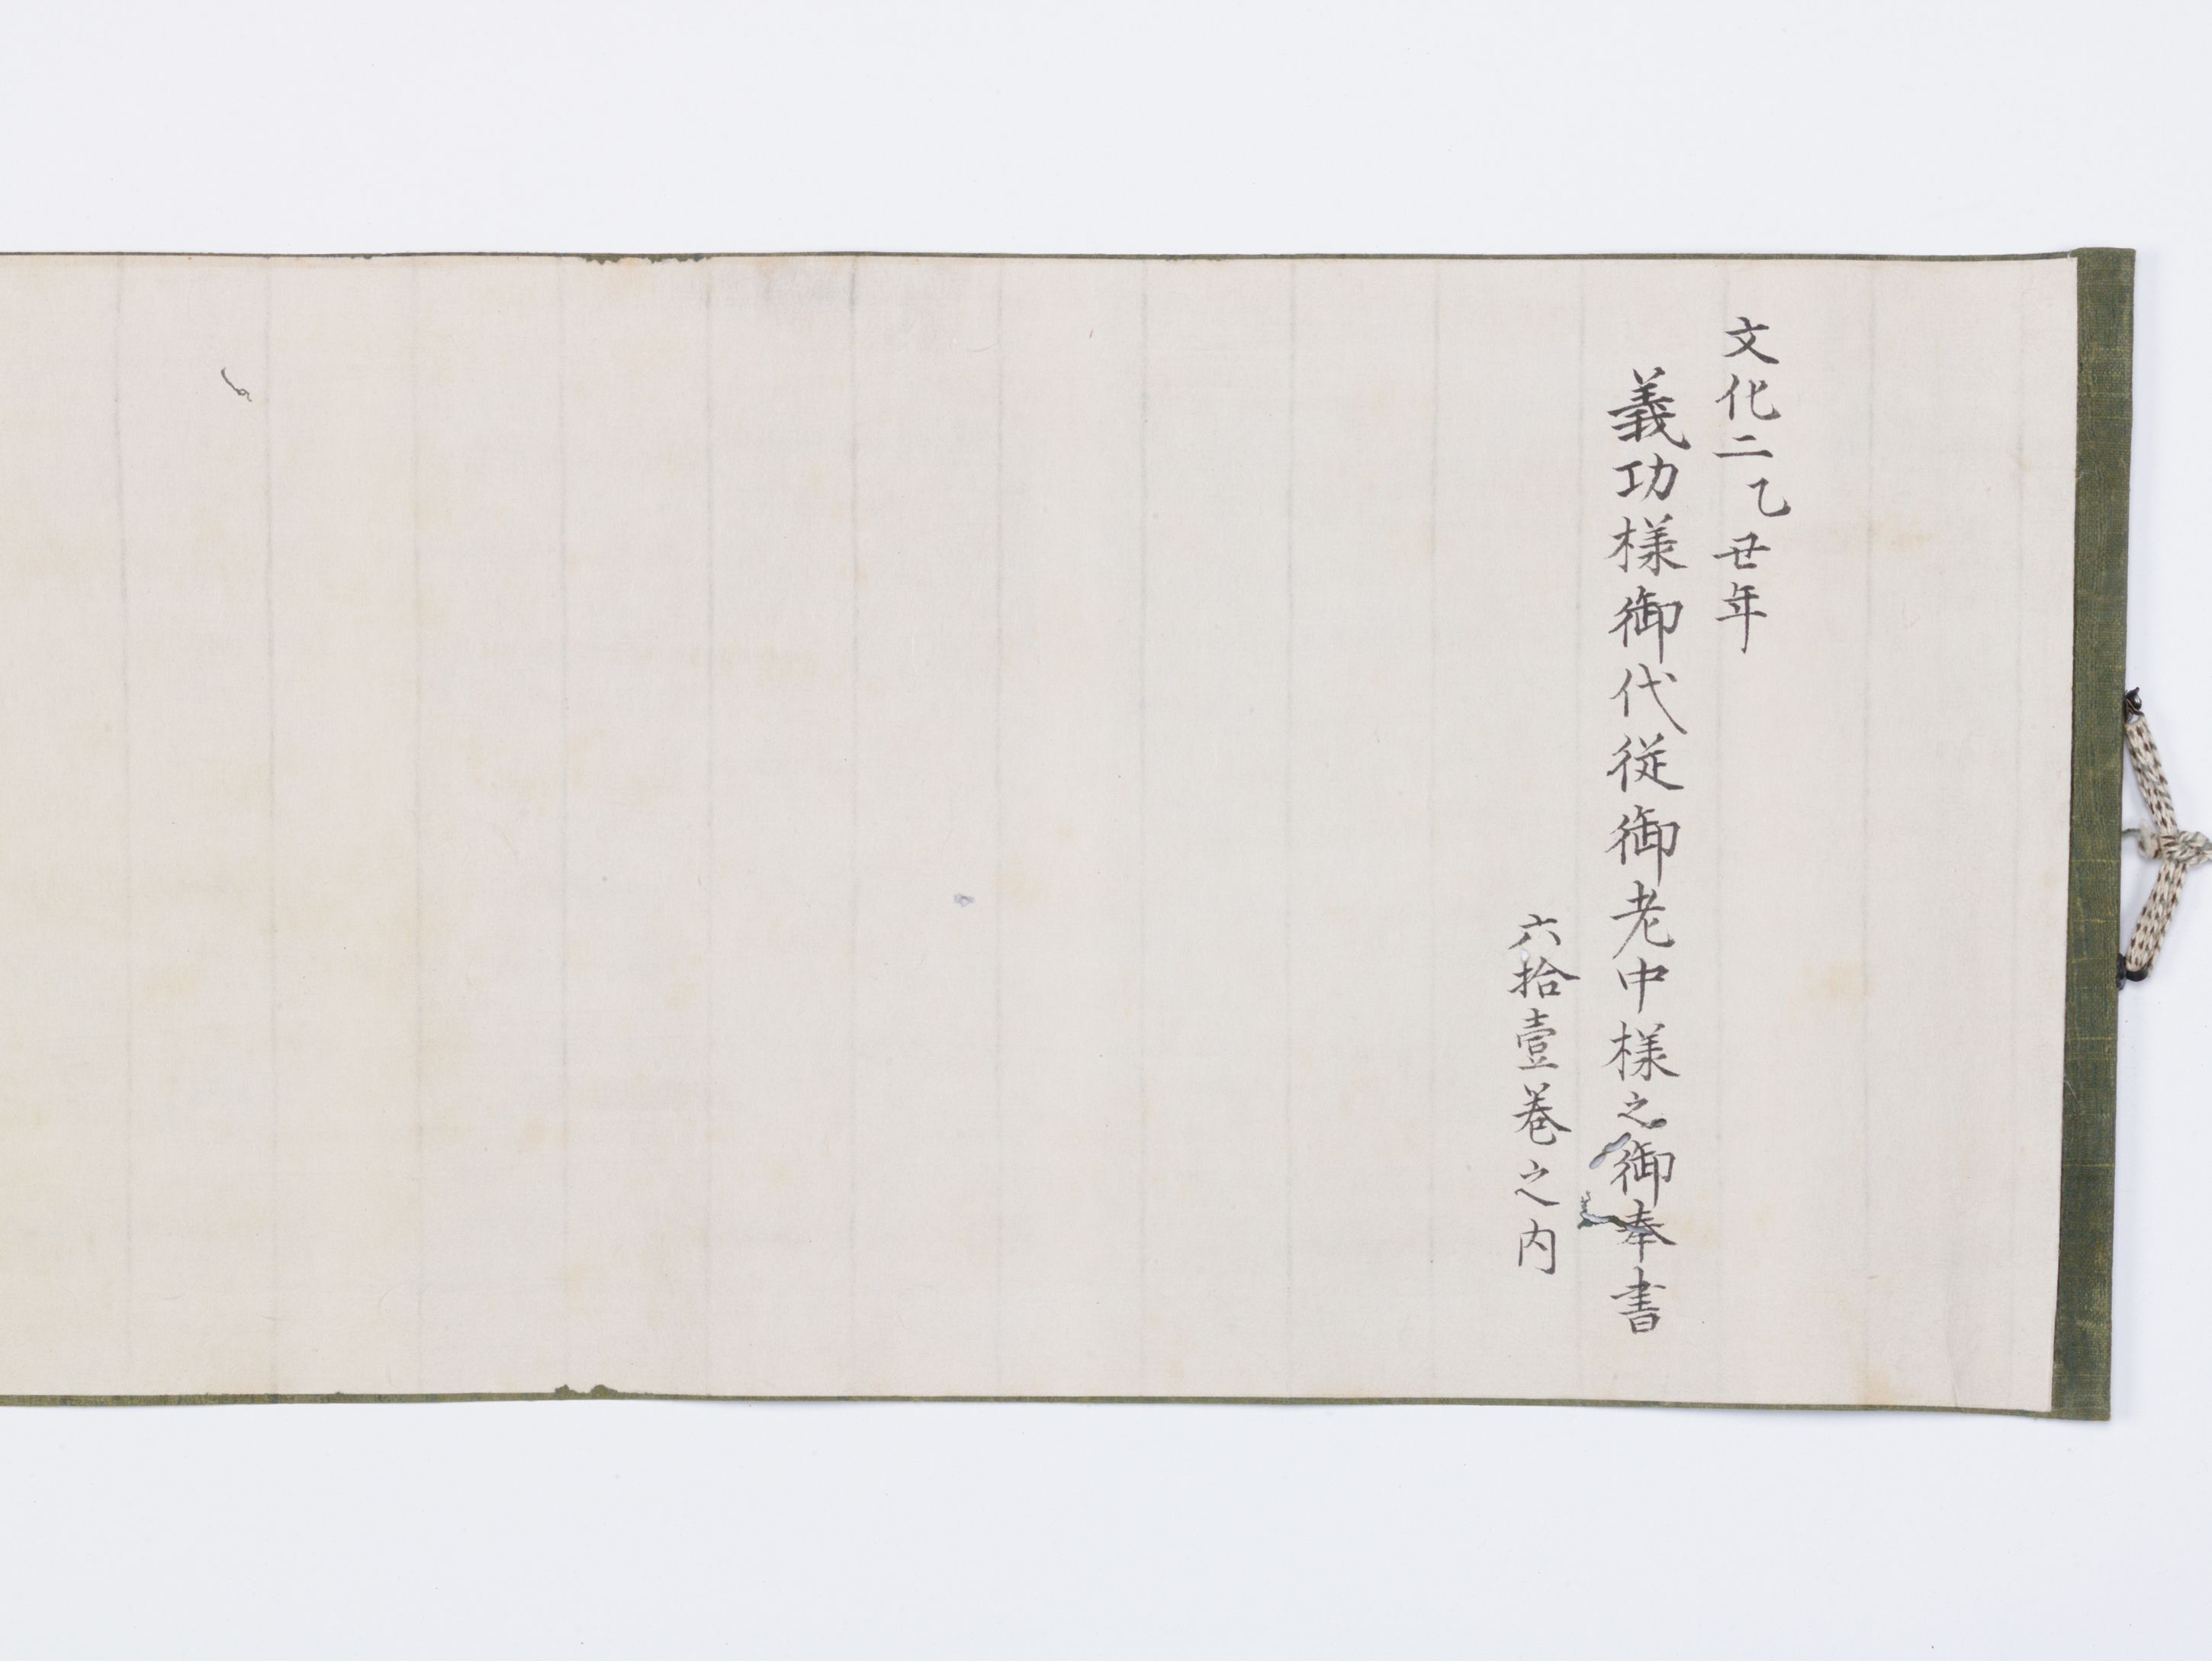 文化二乙丑年
義功様御代従御老中様之御奉書
六拾壹巻之内